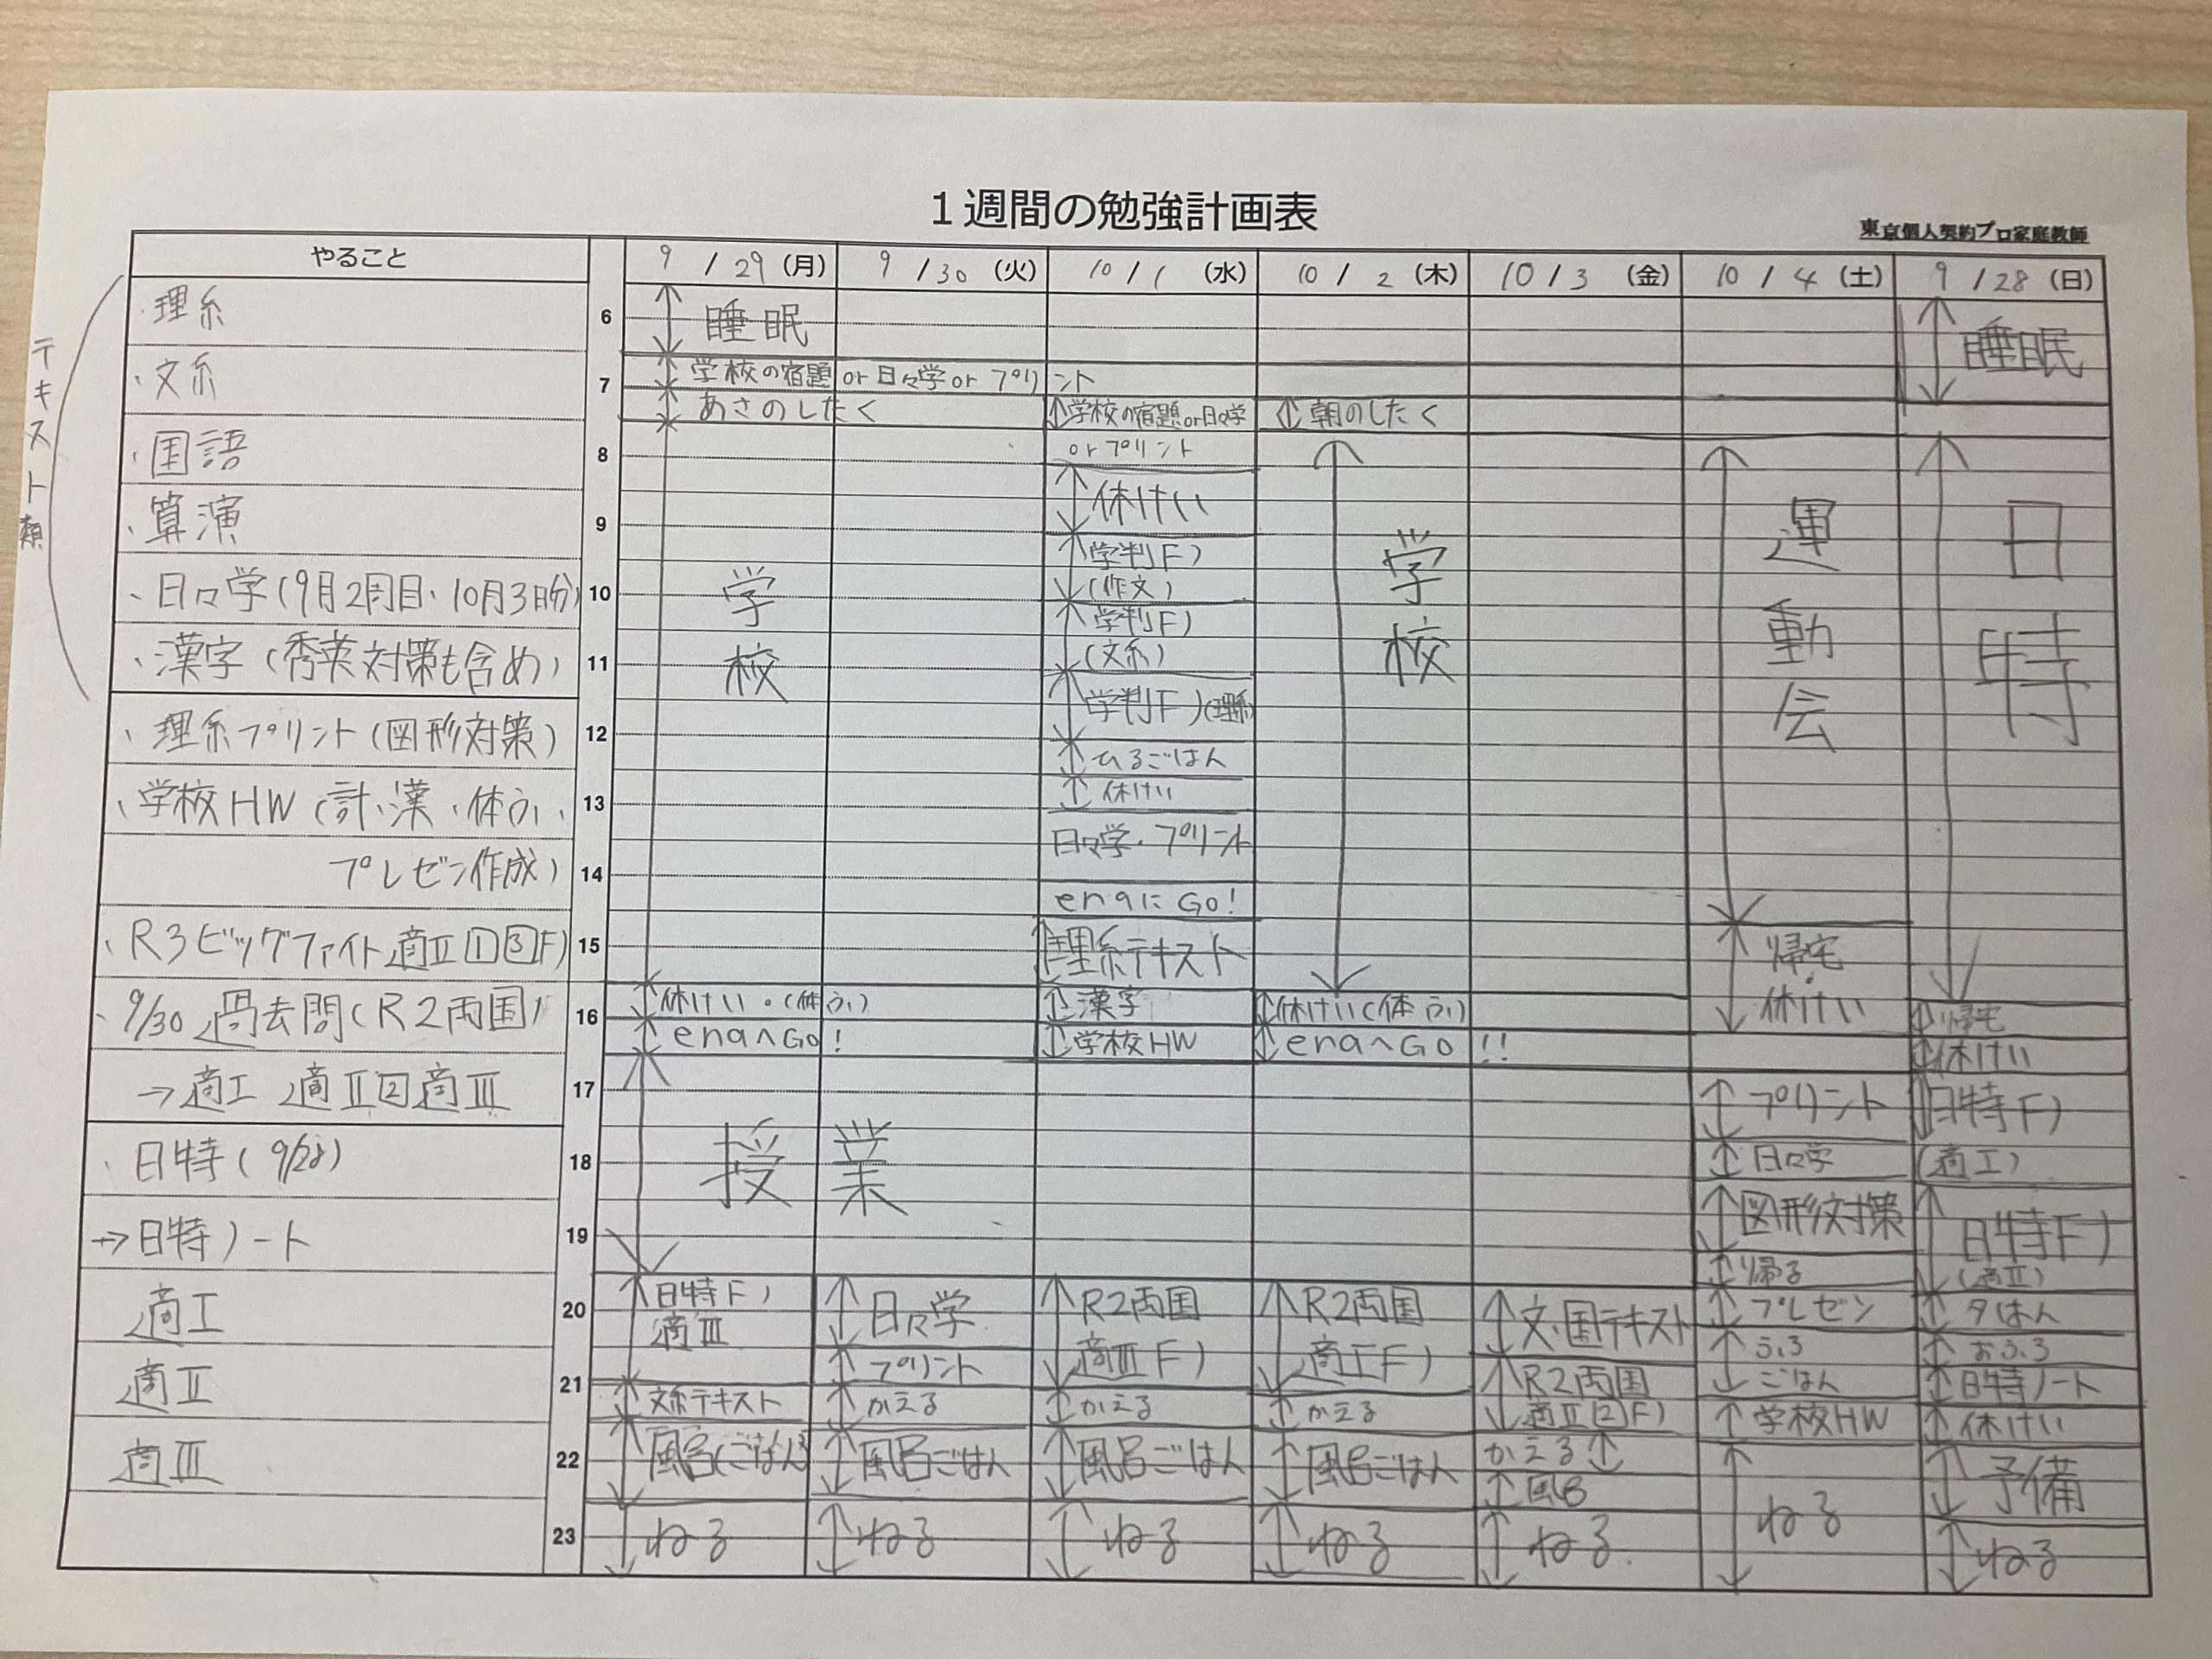 1週間の勉強計画表
東京個人契約プロ家庭教師
やること
9 / 29 (月)
9 / 30 (火)
10 / 1 (水)
10 / 2 (木)
10 / 3 (金)
10 / 4 (土)
9 / 28 (日)
テキスト類
・理系
・文系
・国語
・算演
・日々学(9月2周目・10月3日分)
・漢字(秀英対策も含め)
・理系プリント(図形対策)
・学校HW(計・漢・体ふり・
プレゼン作成)
・R3ビッグファイト適Ⅱ①③F)
・9/30 過去問(R2両国)
→適Ⅰ 適Ⅱ②適Ⅲ
・日特(9/28)
→日特ノート
適Ⅰ
適Ⅱ
適Ⅲ
6
7
8
9
10
11
12
13
14
15
16
17
18
19
20
21
22
23
睡眠
学校の宿題 or 日々学 or プリント
あさのしたく
学校
休けい・(体ふり)
enaへGo!
授業
日特F)
適Ⅲ
文系テキスト
風呂(ごはん)
ねる
日々学
プリント
かえる
風呂ごはん
ねる
学校の宿題or日々学
orプリント
休けい
学判F)
(作文)
学判F)
(文系)
学判F)(理系)
ひるごはん
休けい
日々学・プリント
enaにGo!
理系テキスト
漢字
学校HW
R2両国
適Ⅲ F)
かえる
風呂ごはん
ねる
朝のしたく
学校
休けい(体ふり)
enaへGo!!
R2両国
適ⅠF)
かえる
風呂ごはん
ねる
文・国テキスト
R2両国
適Ⅱ②F)
かえる
風呂
ねる
運動会
帰宅・
休けい
プリント
日々学
図形対策
帰る
プレゼン
ふろ
ごはん
学校HW
ねる
睡眠
日特
帰宅
休けい
日特F)
(適Ⅰ)
日特F)
(適Ⅱ)
夕はん
おふろ
日特ノート
休けい
予備
ねる